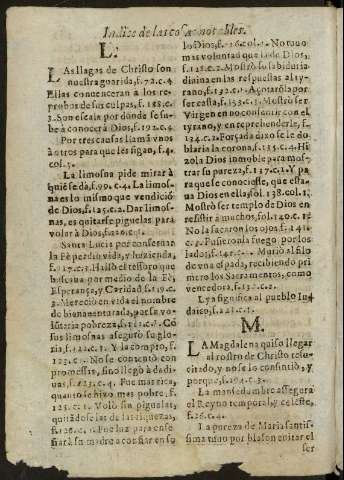 Indice de las cosas notables.
L.
LAs llagas de Christo son
nuestra guarida, f.72.c.4
Ellas convenceran a los re-
probos de sus culpas, f.188.c.
3. Son escala por donde se su-
be à conocer à Dios, f.192.c.4
Por tres causas llama vnos
à otros para que les sigan, f.4.
col.5.
La limosna pide mirar à
quiē se dà, f.99.c.4. La limos-
na es lo mismo que vendiciō
de Dios, f.125.c.2. Dar limos-
nas, es quitarse piguelas para
volar à Dios,
Santa Lucia por conseruar
la Fè perdiò vida, y hazienda,
f.117.c.3. Hallò el tesoro que
buscaua por medio de la Fè,
Esperança, y Caridad f.119.c.
3. Mereciò en vida el nombre
de bienauenturada, por su vo-
luntaria pobreza, f.121.c.3. Cō
sus limosnas assegurò su glo-
ria, f.122.c.3. Y la comprò, f.
123. No se contentò con
promessas, sino llegò à dadi-
uas, f.123.c.4. Fue mas rica,
quanto se hizo mas pobre, f.
125.c.1. Volò sin piguelas,
quitādose las de las riquezas,
f.126.c.1. Fue luz para ense-
ñarà su madre a confiar en so
lo Dios, f.126.col.1. No tuuo
mas voluntad que la de Dios,
f.128.c.2. Mostrò su sabiduria
diuina en las respuestas al ty-
rano, f.132.c.1. Açotarōla por
ser casta, f.133.c.1. Mostrò ser
Virgen en no consentir con el
tyrano, y en reprehenderle, f.
134.c.2. Forçada dixo se le do-
blaria la corona, f.135.c.4. Hi
zola Dios inmoble para mos-
trar su pureza, f.137.c.1. Y pa
ra que se conociesse, que esta-
ua Dios en ella, fol. 138.col.1.
Mostrò ser templo de Dios en
resistir à muchos, fol. 140.c.1.
No la sacaron los ojos, f.141.
c.3. Pusieronla fuego por los
lados, f.141. Murio al filo
de vna espada, recibiendo pri
mero los Sacramentos, como
vencedora, f.152.c.2.
Lya significa al pueblo Iu-
daico, f.221.c.1.
M.
LA Magdalena quiso llegar
al rostro de Christo resu-
citado, y no se lo consintiò, y
porque, f.194.c.3.
La mansedumbre assegura
el Reyno temporal, y celeste,
f.26.c.4.
La pureza de Maria santis-
sima tuuo por blason euitar el
ser